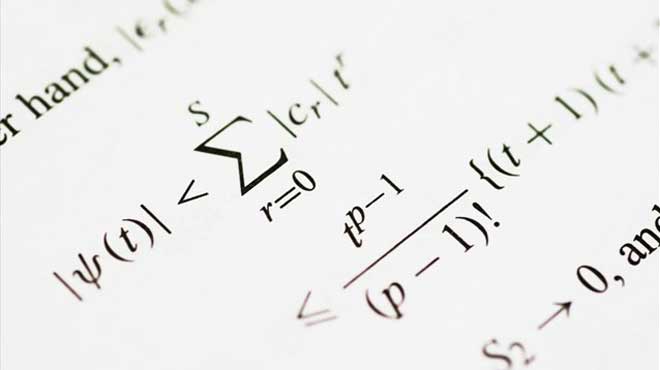 er hand, |ϵ_r(
|ψ(t)| < \sum_{r=0}^{s} |c_r| t^r
≤ \frac{t^{p−1}}{(p − 1)!} {(t + 1)(t +
S_2 → 0, and